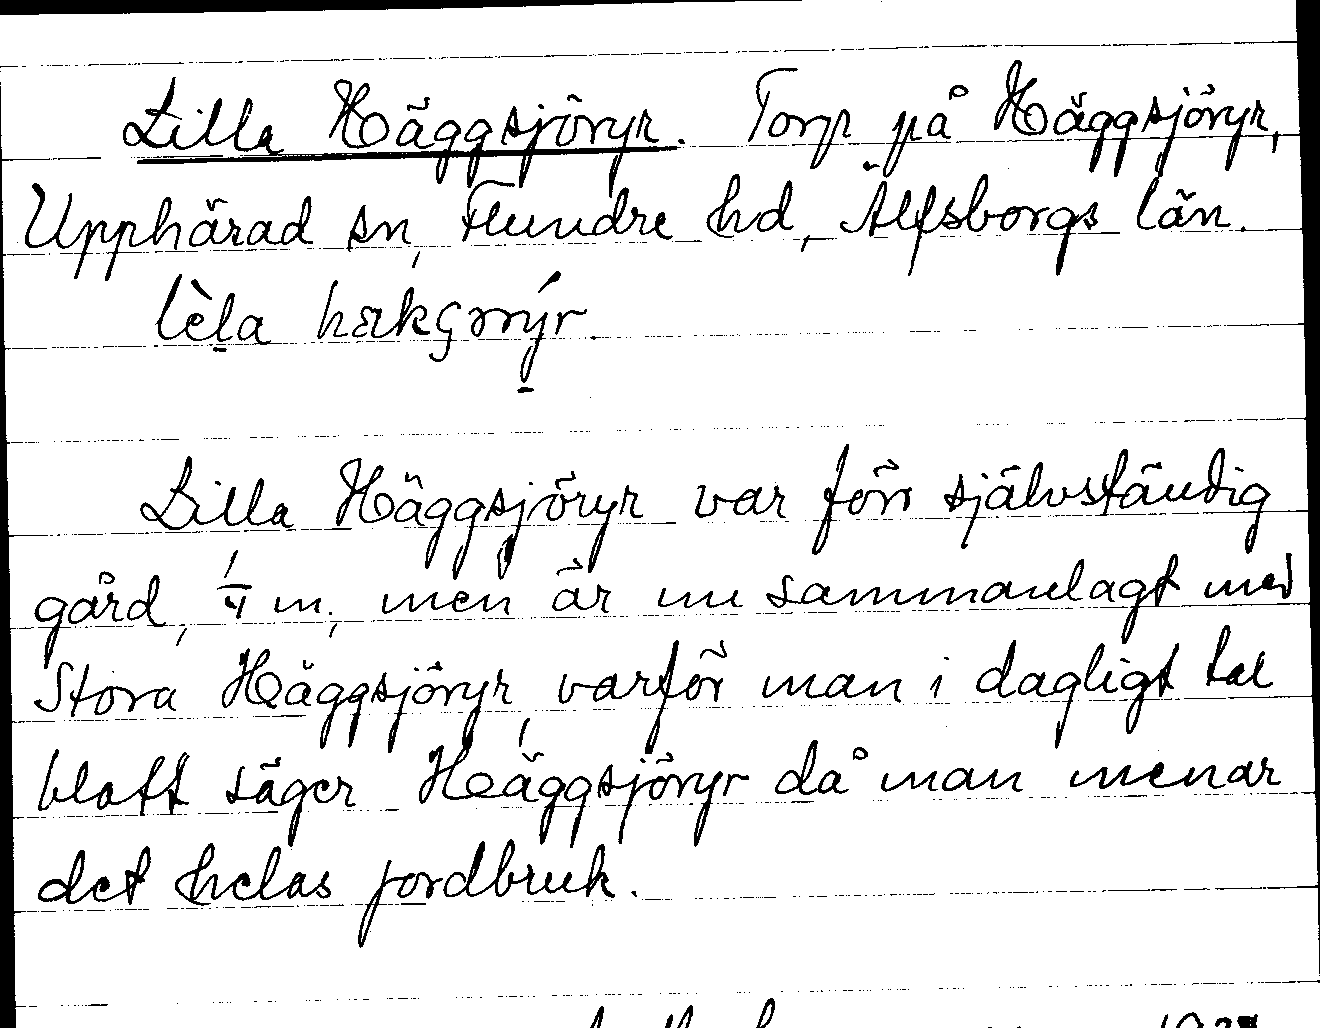 Lilla Häggsjöryr. Torp på Häggsjöryr,
Upphärad sn, Flundre hd, Älfsborgs län.
lèl̠a
Lilla Häggsjöryr var förr självständig
gård, 1/4 m, men är nu sammanlagt med
Stora Häggsjöryr, varför man i dagligt tal
blott säger Häggsjöryr då man menar
det helas jordbruk.